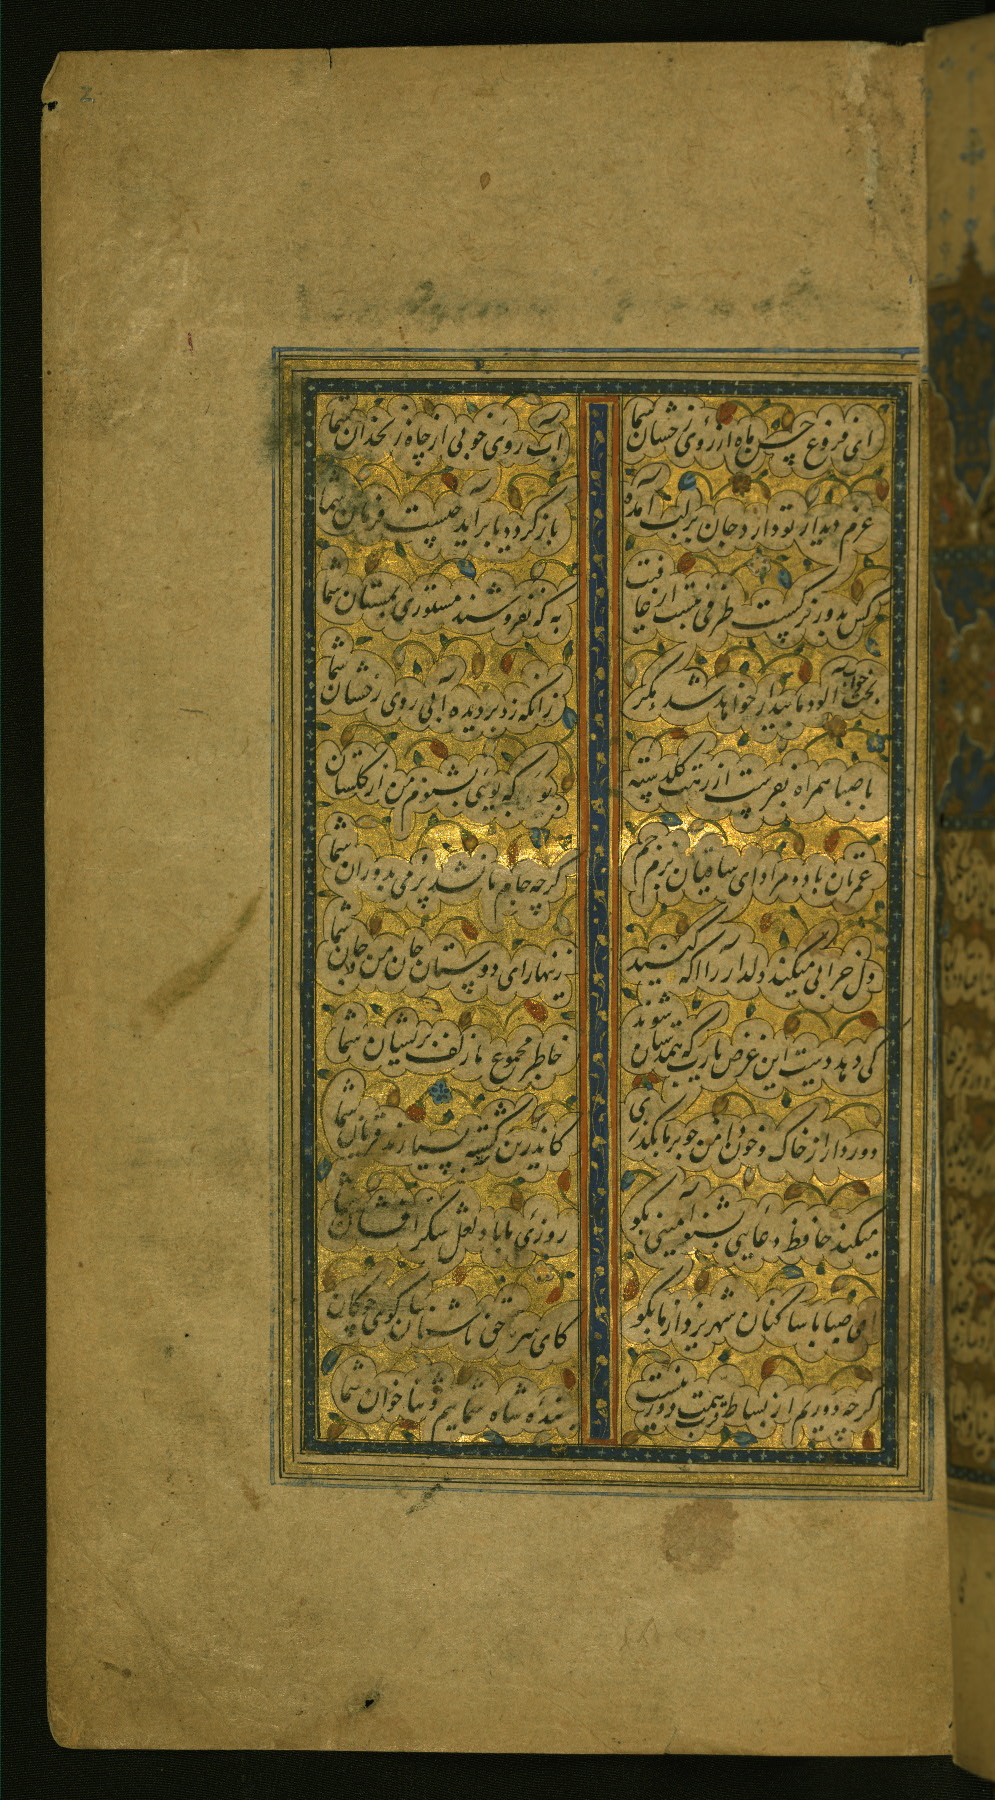 2
ای فروغ حسن ماه از روی رخشان شما آب روی خوبی از چاه زنخدان شما
عزم دیدار تو دارد جان بر لب آمده باز گردد یا برآید چیست فرمان شما
کس بدور نرگست طرفی نبست از عافیت به که نفروشند مستوری بمستان شما
بخت خواب آلود ما بیدار خواهد شد مگر زانکه زد بر دیده آبی روی رخشان شما
با صبا همراه بفرست از رخت گلدسته بو که بوئی بشنوم من از گلستان
عمرتان باد و مراد ای ساقیان بزم جم گرچه جام ما نشد پر می بدوران شما
دل خرابی میکند دلدار را آگه کنید زینهار ای دوستان جان من و جان شما
کی دهد دست این غرض یارب که همدستان شوند خاطر مجموع ما زلف پریشان شما
دور دار از خاک و خون دامن چو بر ما بگذری کاندرین ره کشته بسیارند قربان شما
میکند حافظ دعایی بشنو آمینی بگو روزئ ما باد لعل شکر افشان شما
ای صبا با ساکنان شهر یزد از ما بگو کای سر حق ناشناسان گوی چوگان
گرچه دوریم از بساط قرب همت دور نیست بنده شاه شماییم و ثنا خوان شما